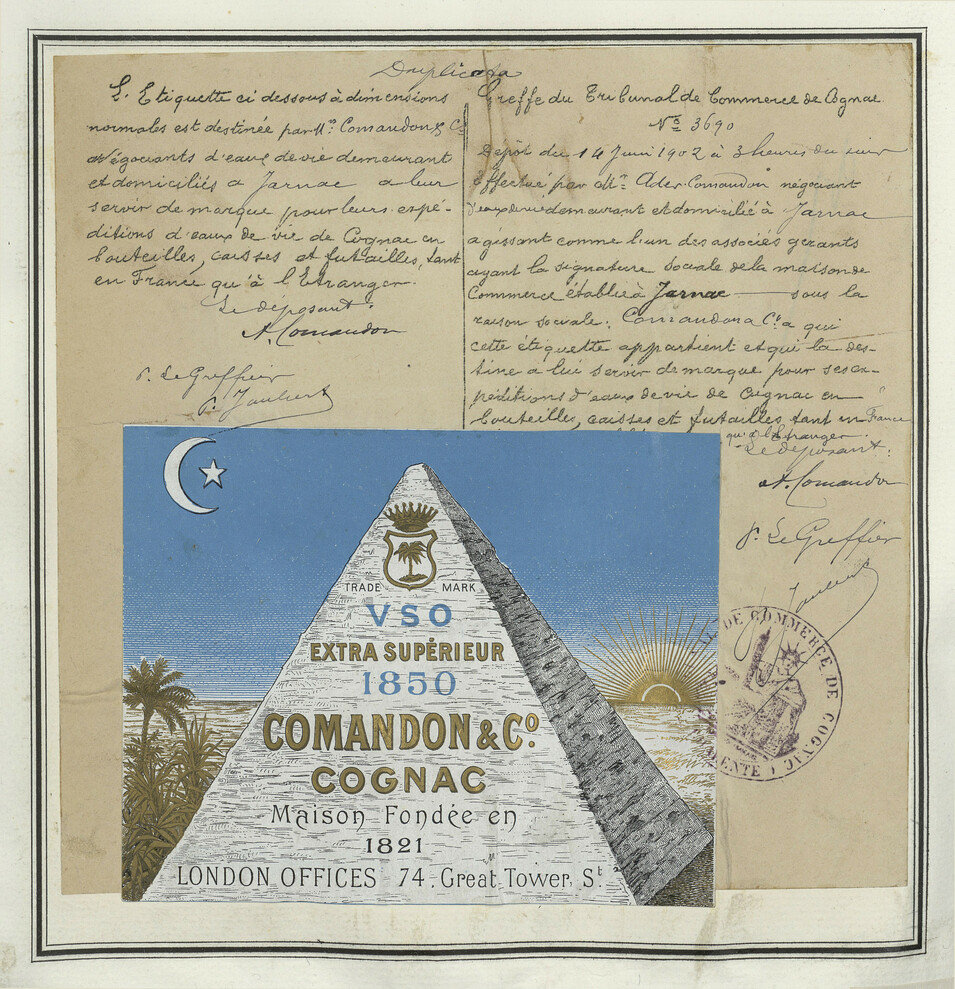 Duplicata
L'Etiquette ci dessous à dimensions
normales est destinée par Mrs Comandon & Co
Négociants d'eaux de vie demeurant
et domiciliés à Jarnac à leur
servir de marque pour leurs expé-
ditions d'eaux de vie de Cognac en
bouteilles, caisses et futailles, tant
en France qu'à l'Etranger.
Le déposant:
A. Comandon
P. Le Greffier
Greffe du Tribunal de Commerce de Cognac
No 3690
Depôt du 14 Juin 1902 à 3 heures du soir
Effectué par Mr. Ader-Comandon négociant
d'eaux de vie demeurant et domicilié à Jarnac
agissant comme l'un des associés gerants
ayant la signature sociale de la maison de
Commerce établie à Jarnac — sous la
raison sociale: Comandon & Co a qui
cette étiquette appartient et qui la des-
tine a lui servir de marque pour ses ex-
péditions d'eaux de vie de Cognac en
bouteilles, caisses et futailles, tant en France
qu'à l'Etranger.
Le déposant:
A. Comandon
P. Le Greffier
TRADE MARK
VSO
EXTRA SUPÉRIEUR
1850
COMANDON & Co.
COGNAC
Maison Fondée en
1821
LONDON OFFICES 74. Great Tower, St
DE COMMERCE DE COGNAC
ENTE